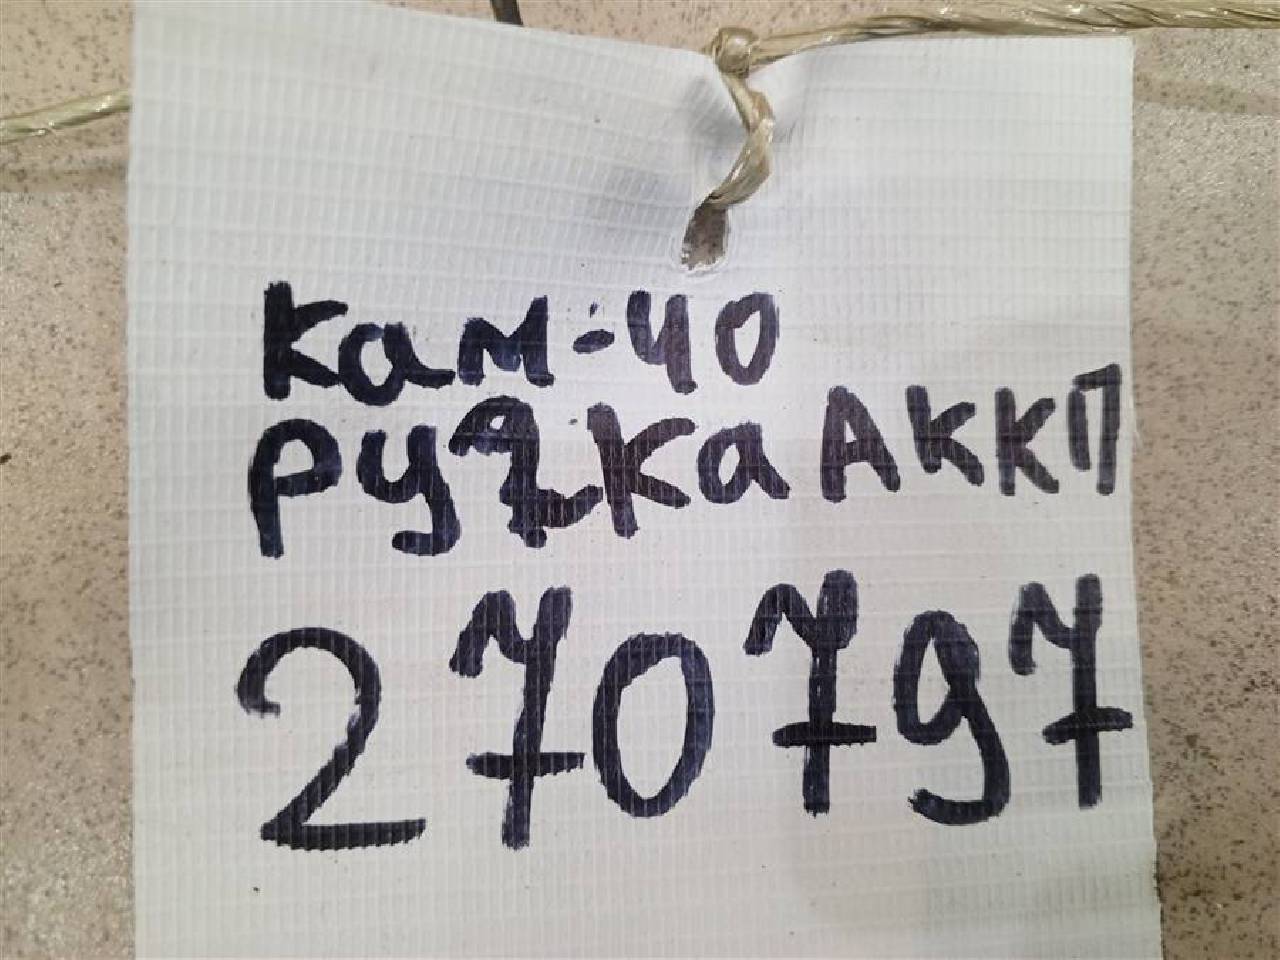 Кам-40
Ручка АККП
270797